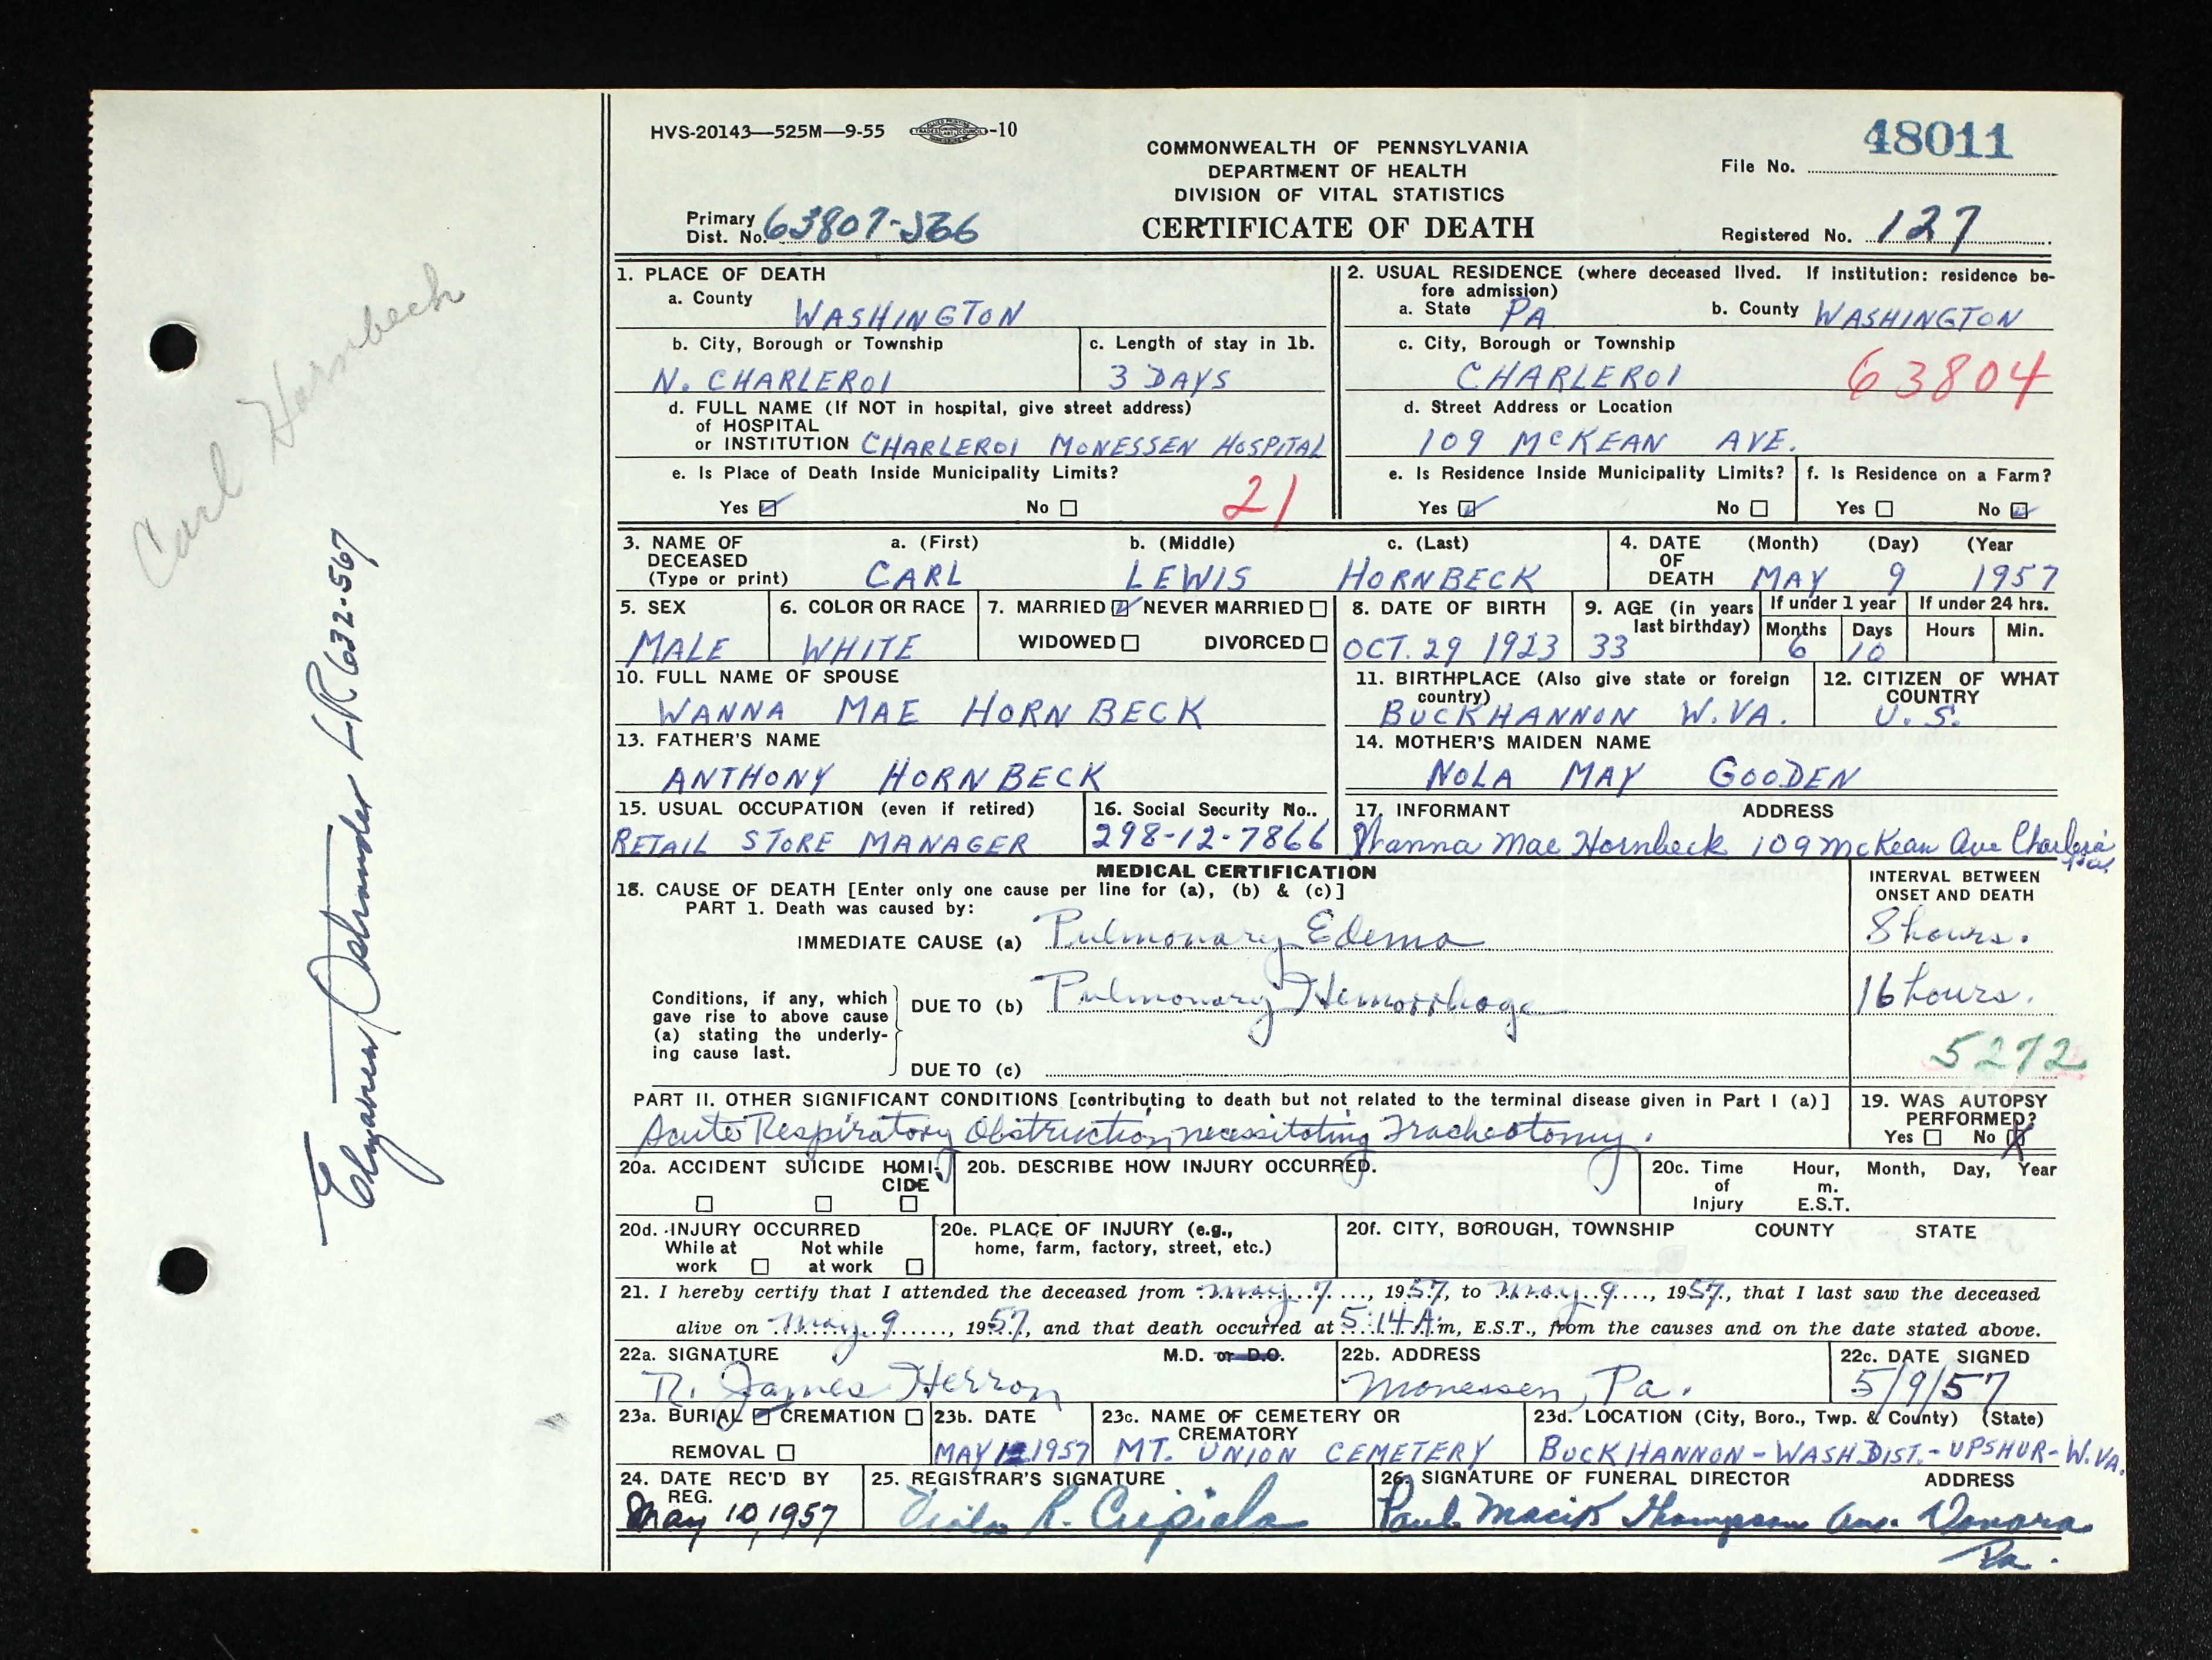 HVS-20143—525M—9-55 -10
48011
COMMONWEALTH OF PENNSYLVANIA
DEPARTMENT OF HEALTH
DIVISION OF VITAL STATISTICS
CERTIFICATE OF DEATH
File No.
Primary Dist. No. 63807-566
Registered No. 127
1. PLACE OF DEATH
a. County WASHINGTON
b. City, Borough or Township N. CHARLEROI
c. Length of stay in 1b. 3 DAYS
d. FULL NAME (If NOT in hospital, give street address)
of HOSPITAL
or INSTITUTION CHARLEROI MONESSEN HOSPITAL
e. Is Place of Death Inside Municipality Limits?
Yes No 21
2. USUAL RESIDENCE (where deceased lived. If institution: residence be-
fore admission)
a. State PA b. County WASHINGTON
c. City, Borough or Township
CHARLEROI 63804
d. Street Address or Location
109 McKEAN AVE.
e. Is Residence Inside Municipality Limits? f. Is Residence on a Farm?
Yes No Yes No
3. NAME OF DECEASED (Type or print)
a. (First) b. (Middle) c. (Last)
CARL LEWIS HORNBECK
4. DATE OF DEATH (Month) (Day) (Year
MAY 9 1957
5. SEX MALE
6. COLOR OR RACE WHITE
7. MARRIED NEVER MARRIED
WIDOWED DIVORCED
8. DATE OF BIRTH OCT. 29 1923
9. AGE (in years last birthday) 33
If under 1 year Months 6 Days 10
If under 24 hrs. Hours Min.
10. FULL NAME OF SPOUSE
WANNA MAE HORNBECK
11. BIRTHPLACE (Also give state or foreign country)
BUCKHANNON W.VA.
12. CITIZEN OF WHAT COUNTRY
U. S.
13. FATHER'S NAME
ANTHONY HORNBECK
14. MOTHER'S MAIDEN NAME
NOLA MAY GOODEN
15. USUAL OCCUPATION (even if retired)
RETAIL STORE MANAGER
16. Social Security No..
298-12-7866
17. INFORMANT ADDRESS
Wanna Mae Hornbeck 109 McKean Ave Charleroi Pa.
MEDICAL CERTIFICATION
18. CAUSE OF DEATH [Enter only one cause per line for (a), (b) & (c)]
PART 1. Death was caused by:
INTERVAL BETWEEN ONSET AND DEATH
IMMEDIATE CAUSE (a) Pulmonary Edema 8 hours.
Conditions, if any, which
gave rise to above cause
(a) stating the underly-
ing cause last.
DUE TO (b) Pulmonary Hemorrhage 16 hours.
5272
DUE TO (c)
PART II. OTHER SIGNIFICANT CONDITIONS [contributing to death but not related to the terminal disease given in Part I (a)]
Acute Respiratory Obstruction, necessitating Tracheotomy.
19. WAS AUTOPSY PERFORMED?
Yes No
20a. ACCIDENT SUICIDE HOMI-
CIDE
20b. DESCRIBE HOW INJURY OCCURRED.
20c. Time of Injury Hour, Month, Day, Year
m.
E.S.T.
20d. INJURY OCCURRED
While at work Not while at work
20e. PLACE OF INJURY (e.g.,
home, farm, factory, street, etc.)
20f. CITY, BOROUGH, TOWNSHIP COUNTY STATE
21. I hereby certify that I attended the deceased from May 7, 1957, to May 9, 1957, that I last saw the deceased
alive on May 9, 1957, and that death occurred at 5:14 A.m, E.S.T., from the causes and on the date stated above.
22a. SIGNATURE M.D. or D.O.
R. James Herron
22b. ADDRESS
Monessen, Pa.
22c. DATE SIGNED
5/9/57
23a. BURIAL CREMATION
REMOVAL
23b. DATE
MAY 12 1957
23c. NAME OF CEMETERY OR CREMATORY
MT. UNION CEMETERY
23d. LOCATION (City, Boro., Twp. & County) (State)
BUCKHANNON-WASH DIST.-UPSHUR-W.VA.
24. DATE REC'D BY REG.
May 10, 1957
25. REGISTRAR'S SIGNATURE
Viola R.
26. SIGNATURE OF FUNERAL DIRECTOR ADDRESS
Paul Macik Thompson Ave. Donora
Pa.
Carl Hornbeck
LR 632-567